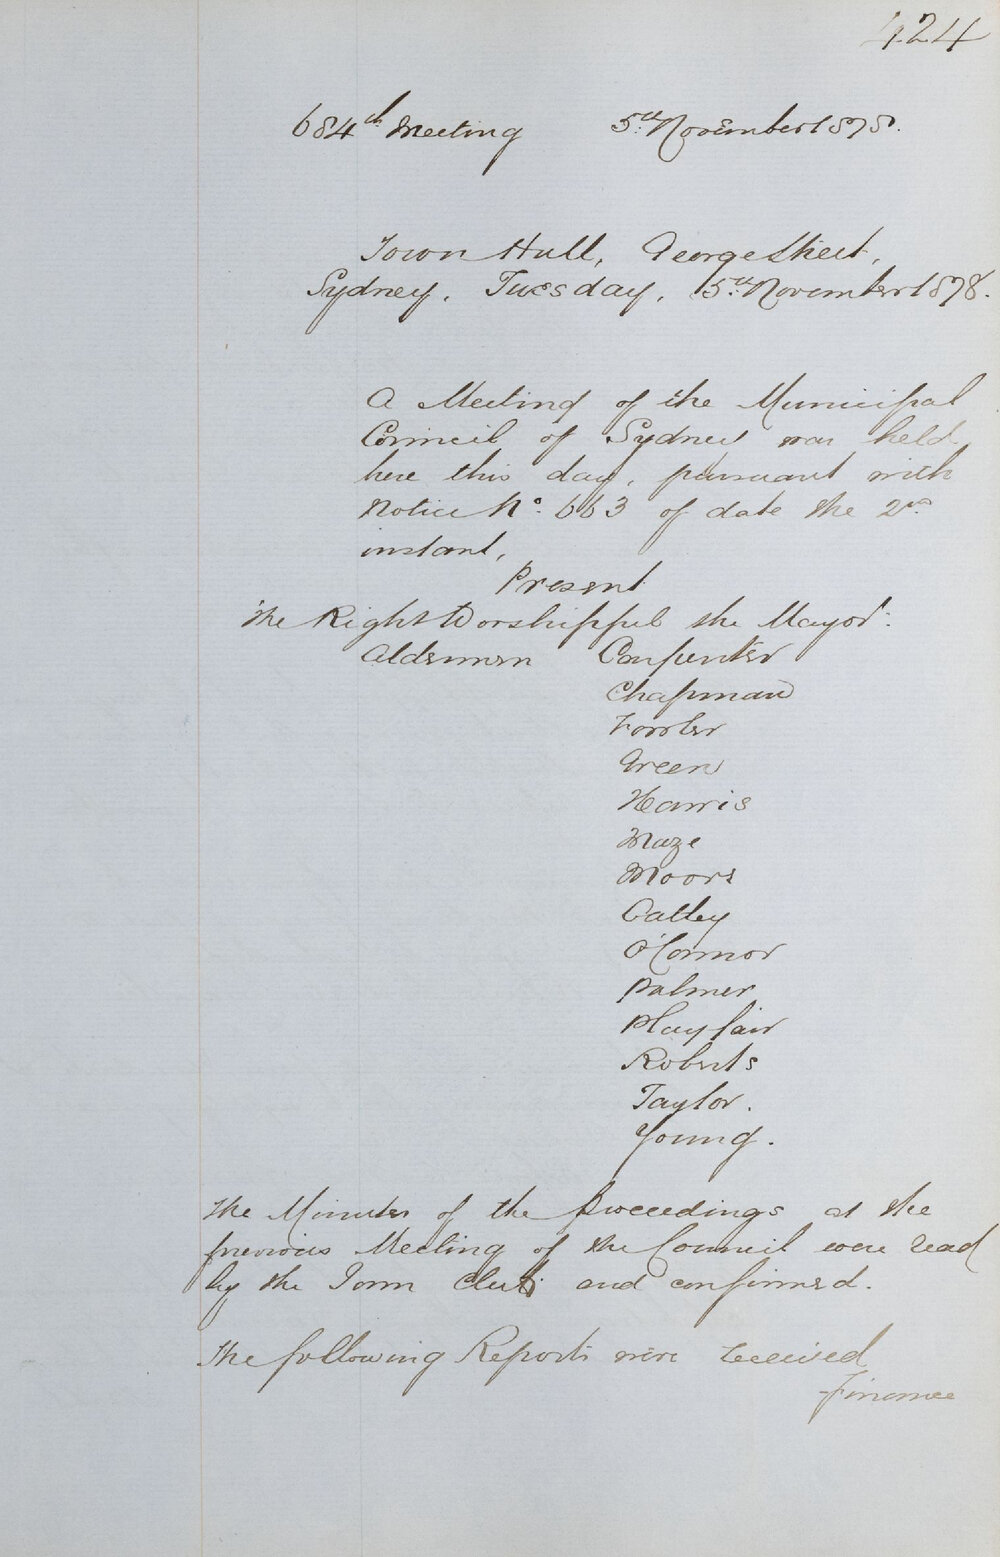 424
684th Meeting 5th November 1878.
Town Hall, George Street,
Sydney, Tuesday, 5th November 1878.
A Meeting of the Municipal
Council of Sydney was held
here this day, pursuant with
Notice No. 663 of date the 2nd
instant,
Present
The Right Worshipful the Mayor:
Aldermen Carpenter
Chapman
Fowler
Green
Harris
Maze
Moore
Oatley
O'Connor
Palmer
Playfair
Roberts
Taylor.
Young.
The Minutes of the Proceedings at the
previous Meeting of the Council were read
by the Town Clerk and confirmed.
The following Reports were received
Finance